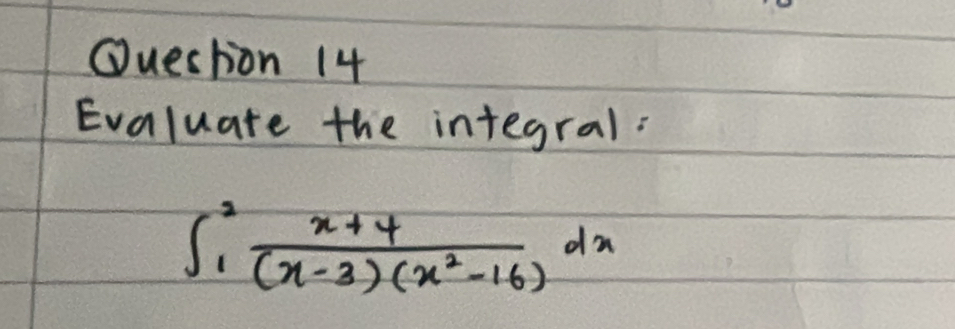 Question 14
Evaluate the integral:
∫₁² (x+4)/((x-3)(x²-16)) dx